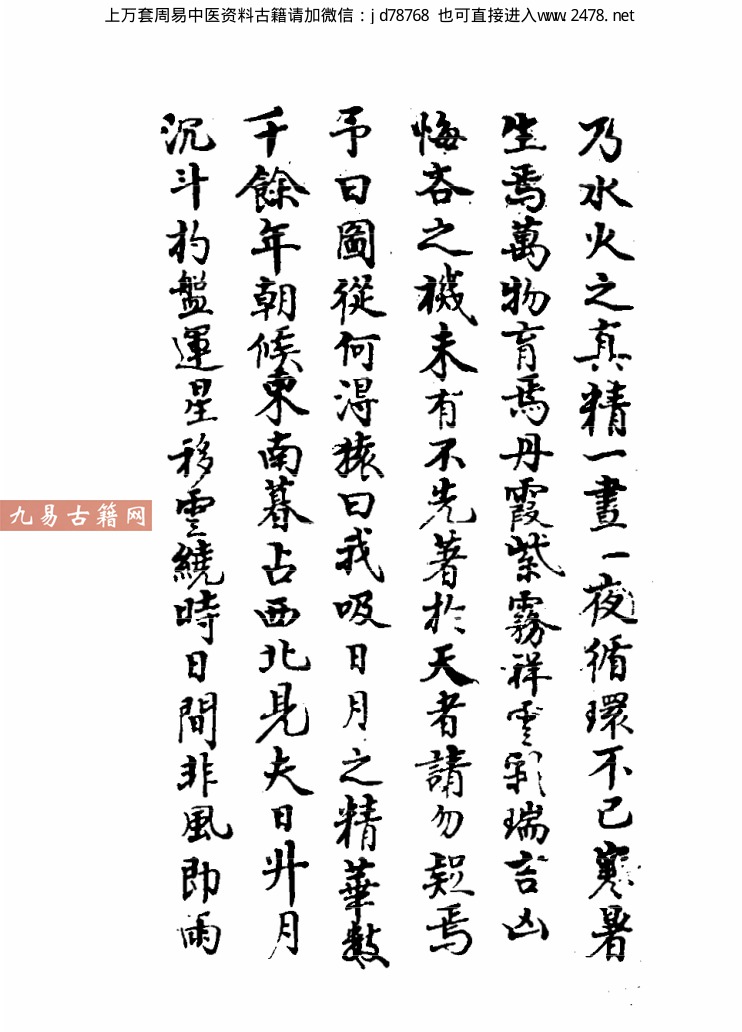 上万套周易中医资料古籍请加微信：jd78768 也可直接进入www.2478.net
乃水火之真精一晝一夜循環不已寒暑
生焉萬物育焉丹霞紫霧祥雲彩瑞吉凶
悔吝之機未有不先著於天者請勿疑焉
予曰圖從何淂猿曰我吸日月之精華數
千餘年朝候東南暮占西北見夫日升月
沉斗杓盤運星移雲繞時日間非風即雨
九易古籍网